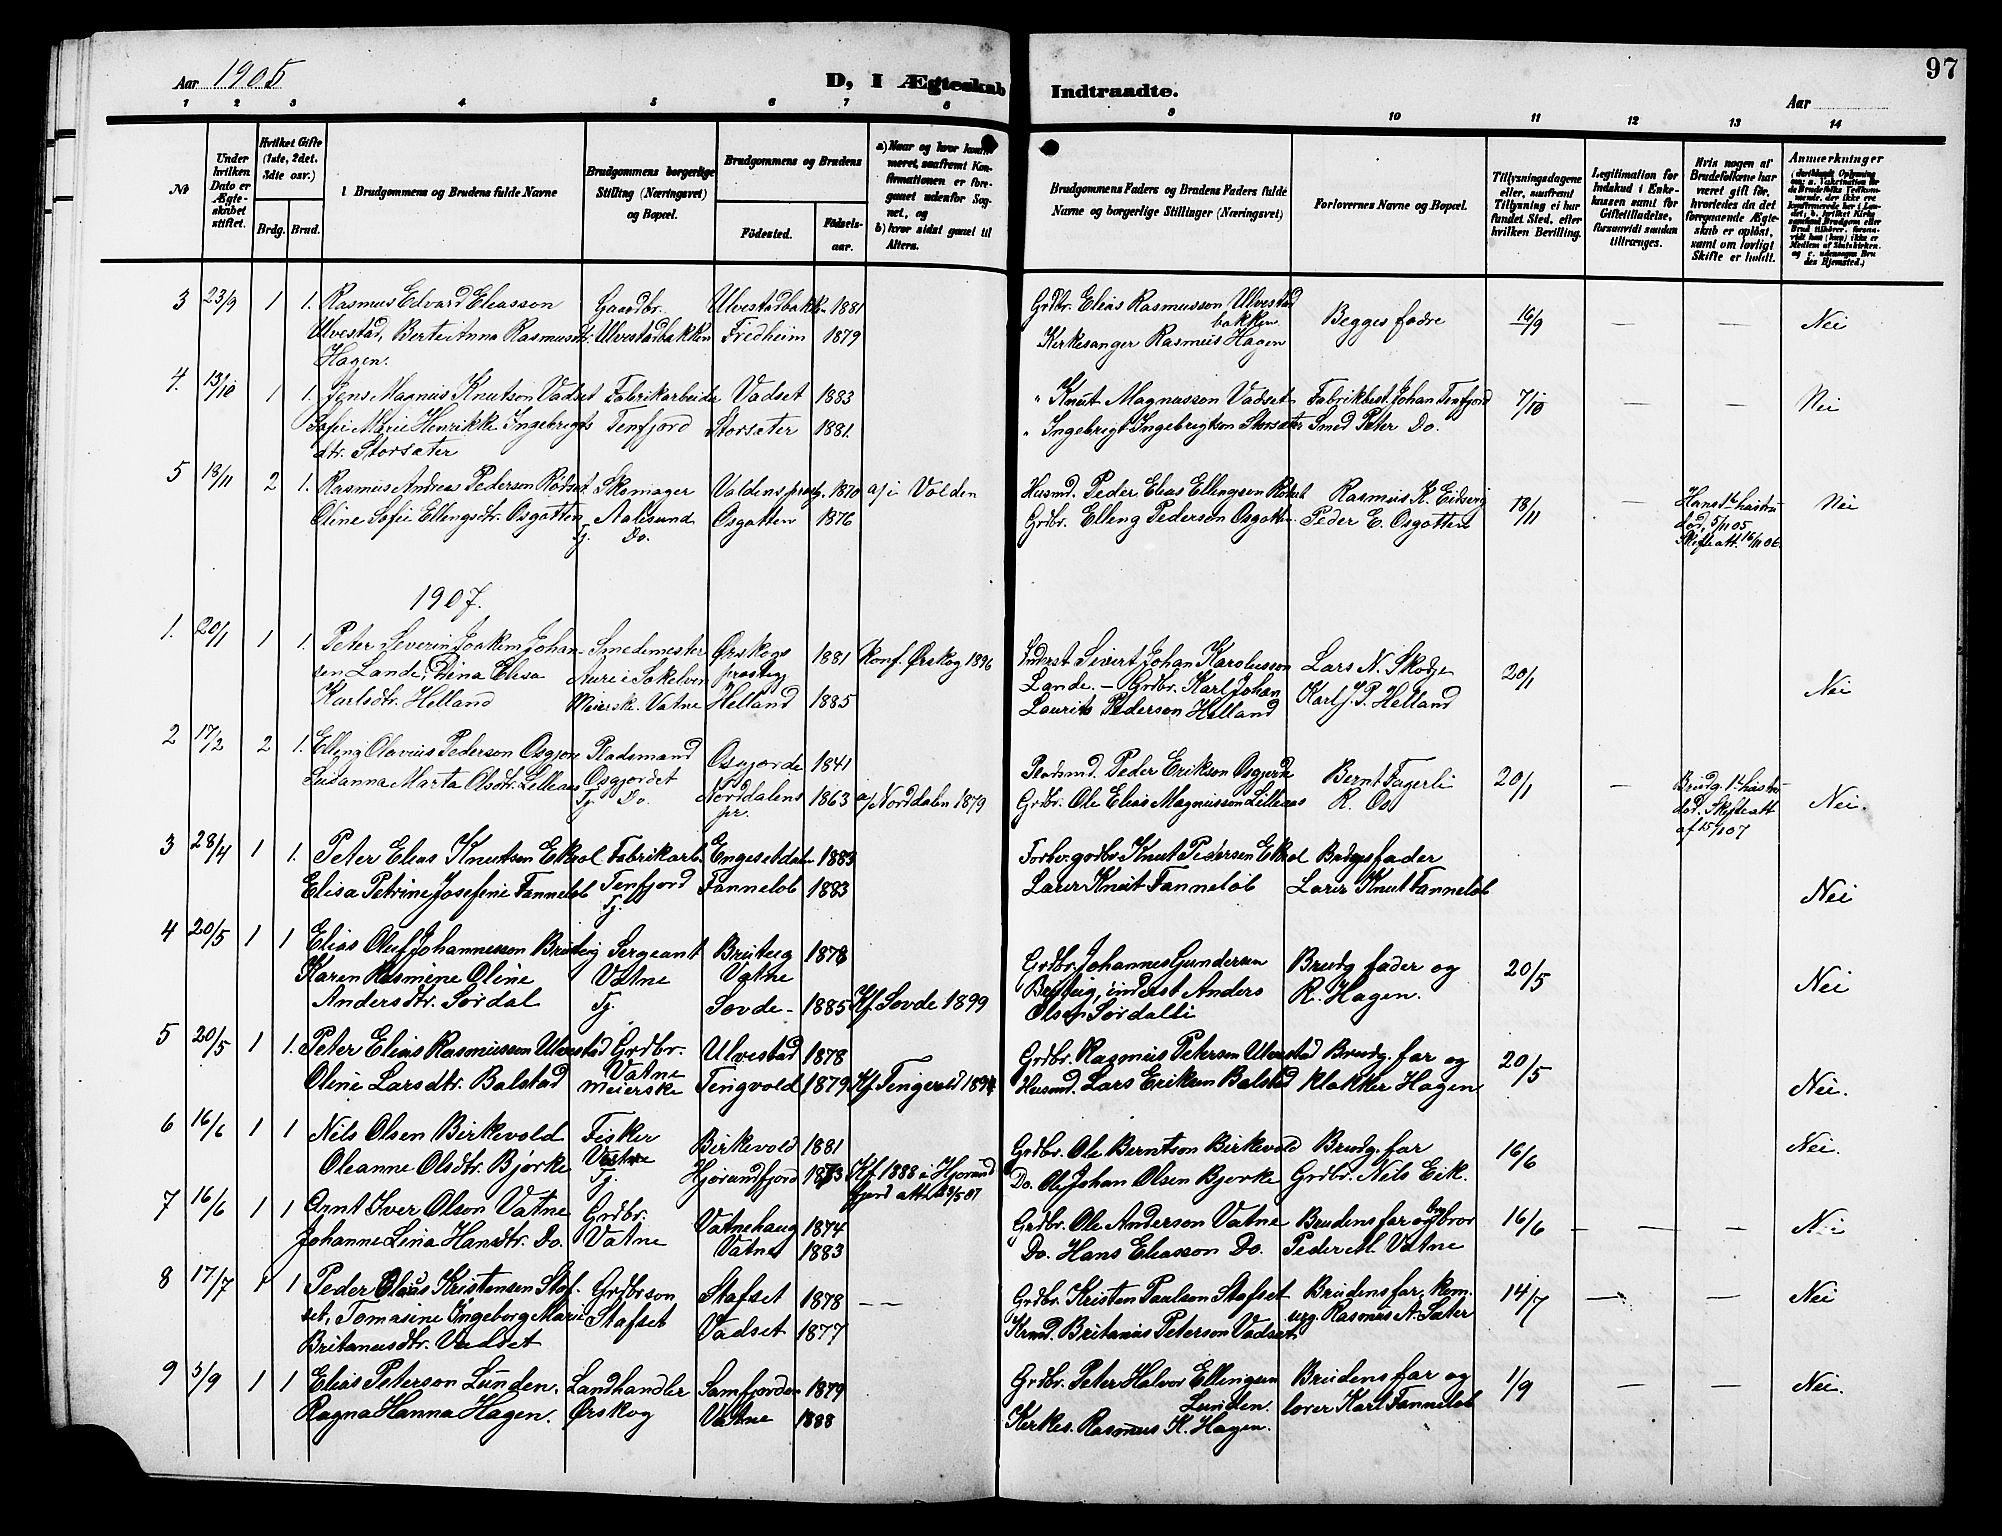 Aar 1905
D, I Ægteskab Indtraadte.
Aar
97
1 2 3 4 5 6 7 8 9 10 11 12 13 14
No
Under hvilken Dato er Ægteskabet stiftet.
Hvilket Gifte (1ste, 2det, 3die osv.)
Brdg. Brud.
Brudgommens og Brudens fulde Navne
Brudgommens borgerlige Stilling (Næringsvei) og Bopæl.
Brudgommens og Brudens
Födested.
Födselsaar.
a) Naar og hvor konfirmeret, saafremt Konfirmationen er foregaaet udenfor Sognet, og
b) hvor sidst gaaet til Alters.
Brudgommens Faders og Brudens Faders fulde Navne og borgerlige Stillinger (Næringsvei)
Forlovernes Navne og Bopæl.
Tillysningsdagene eller, saafremt Tillysning ei har fundet Sted, efter hvilken Bevilling.
Legitimation for Indskud i Enkekassen samt for Giftetilladelse, forsaavidt saadan tiltrænges.
Hvis nogen af Brudefolkene har været gift før, hvorledes da det foregaaende Ægteskab er opløst, samt om lovligt Skifte er holdt.
Anmærkninger
3 23/9 1 1. Rasmus Edvard Eliasson Gaardbr. Ulvestadbakk. 1881 Grdbr. Elias Rasmusson Ulvestad
Ulvestad, Berte Anna Rasmusdtr. Ulvestadbakken Fredheim 1879 bakken Begges fadre 16/9 — — Nei
Hagen. Kirkesanger Rasmus Hagen
4. 13/10 1 1. Jens Magnus Knutson Vadset Fabrikarbeider Vadset 1883 " Knut Magnusson Vadset Fabrikbest. Johan Tenfjord 7/10 — — Nei
Sofie Marie Henrikke Ingebrigts Tenfjord Storsater 1881. " Ingebrigt Ingebrigtson Storsater Smed Peter Do.
dtr. Storsater
5 18/11 2 1. Rasmus Andreas Pederson Rodset Skomager Valdens prestg. 1870 a/i Volden Husmd. Peder Elias Ellingsen Rodset Rasmus K. Eidsvig 18/11 — Hans 1ste hustru Nei
Oline Sofie Ellingsdtr. Osgotten Aalesund Osgotten 1876 Grdbr. Elling Pederson Osgotten Peder E. Osgotten dod, 5/11 05
Tj. Do. Skifteatt. 16/11 06.
1907.
1. 20/1 1 1. Peter Severin Joakim Johan- Smedemester Ørskogs 1881 Konf. Ørskog 1896 Inderst Sivert Johan Karolusson Lars N. Skodje 20/1 Nei
sen Lande, Dina Elisa Aure i Søkelven prestegj
Karlsdtr. Helland Meierske. Vatne Helland 1885 Lande. - Grdbr. Karl Johan Karl J. P. Helland
Laurits Pederson Helland
2 17/2 2 1. Elling Olavus Pederson Osgjorde Pladsmand Osgjorde 1841 Pladsmd. Peder Erikson Osgjerde Bernt Fagerli 20/1 — Brudg. 1ste hustru Nei.
Susanna Marta Olsdtr. Lillenes Osgjordet Norddalens 1863 a/Norddalen 1879 Grdbr. Ole Elias Magnusson Lillenes R. Os dod. Skifteatt
Tj. Do. pr. af 15/1 07
3 28/4 1 1. Peter Elias Knutson Ekrol Fabrikarb. Engesetdalen 1883 Forhv. grdbr. Knut Pedersen Ekrol Brdgs fader
Elisa Petrine Josefine Tanneløb Tenfjord Tanneløb 1883 Lærer Knut Tanneløb Lærer Knut Tanneløb Nei
Tj.
4 20/5 1 1 Elias Oluf Johannesson Bruteig Sergeant Bruteig 1878 Grdbr. Johannes Gundersen Brudg fader og 20/5 Nei
Karen Rasmine Oline Vatne Vatne Bruteig, inderst Anders R. Hagen.
Andersdtr. Sørdal Tj. Sovde- 1885 Kf. Sovde 1899 Olsen Sørdalli
5 20/5 1 1. Peter Elias Rasmusson Ulvestad Grdbr. Ulvestad 1878 Grdbr. Rasmus Petersen Ulvestad Brudg. far og 20/5
Oline Larsdtr. Balstad Vatne
Meierske Tingvold 1879 Kf. Tingvold 1894 Husmd. Lars Eriksen Balstad klokker Hagen Nei.
6 16/6 1 1 Nils Olsen Birkevold Fisker Birkevold 1881 Grdbr. Ole Berntson Birkevold Brudg. far 16/6 Nei.
Oleanne Olsdtr. Bjørke Vatne
Tj. Hjørundfjord 1873 Kf. 1888 i Hjorund Do. Ole Johan Olsen Bjørke Grdbr. Nils Eik.
fjord att. 23/5 07
7 16/6 1 1 Arnt Iver Olson Vatne Grdbr. Vatnehaug 1874 Grdbr. Ole Anderson Vatne Brudens far og bror 16/6 — — Nei
Johanne Lina Hansdtr. Do. Vatne Vatne 1883 Do. Hans Eliasson Do. Peder M. Vatne
8 17/7 1 1 Peder Olaus Kristensen Staf- Grdbrson Stafset 1878 — — Grdbr. Kristen Paulsen Stafset Brudens far, kom- 14/7 — — Nei
set, Tomasine Ingeborg Marie Stafset Vadset 1877 Krmd. Britanus Peterson Vadset. erg. Rasmus A. Sater
Britanusdtr. Vadset
9 5/9 1 1 Elias Peterson Lunden. Landhandler Samfjorden 1879 Grdbr. Peter Halvor Ellingsen Brudens far og 1/9 — — Nei.
Ragna Hanna Hagen. Ørskog Vatne 1888 Lunden. lærer Karl Tanneløb
Kirkes. Rasmus K. Hagen.